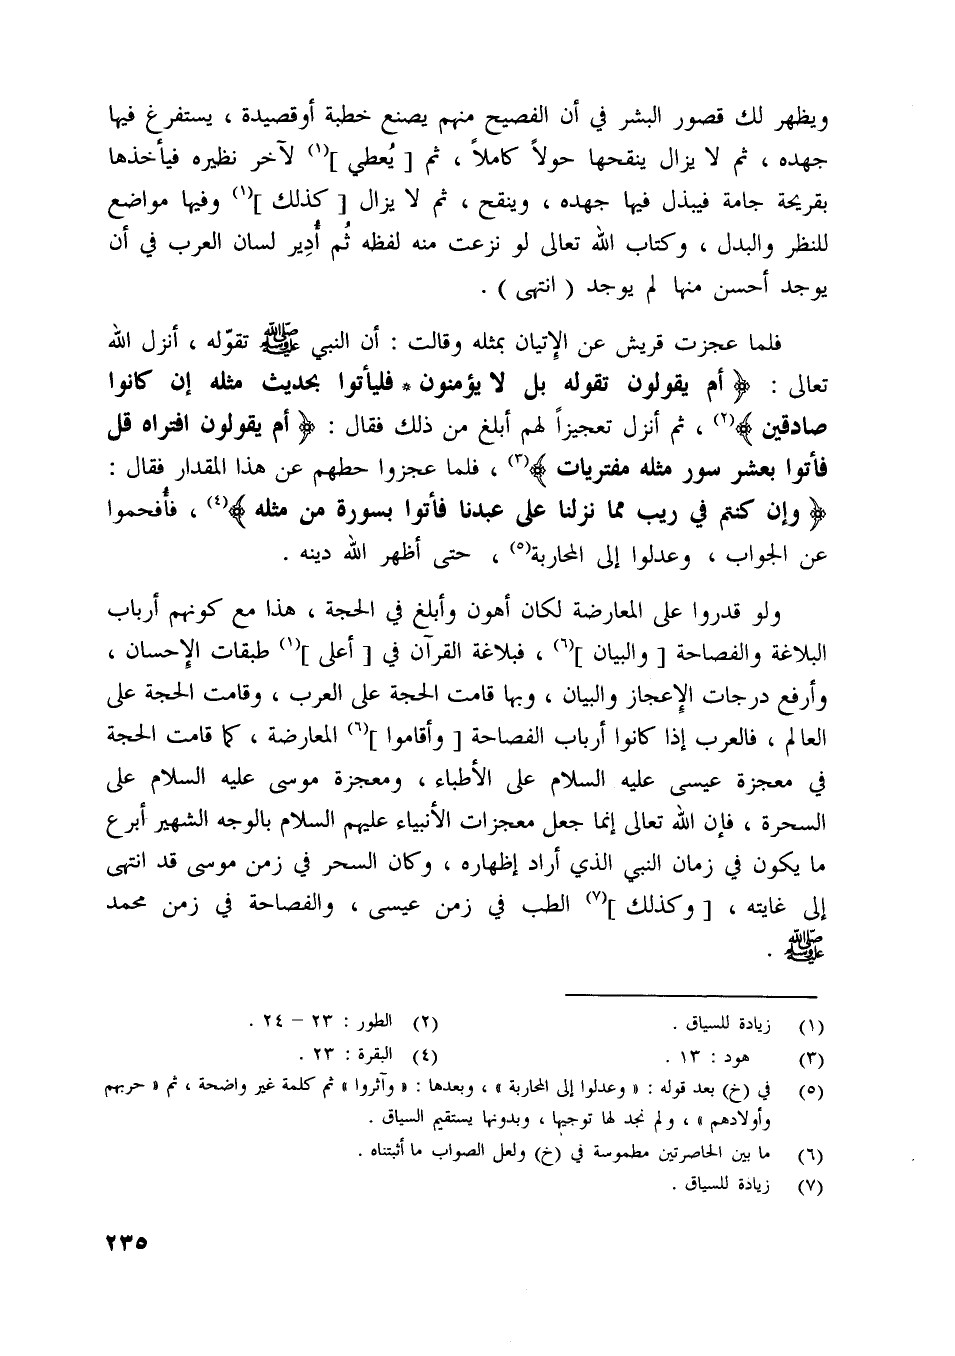 ويظهر لك قصور البشر في أن الفصيح منهم يصنع خطبة أوقصيدة ، يستفرغ فيها
جهده ، ثم لا يزال ينقحها حولاً كاملاً ، ثم [ يُعطي ](١) لآخر نظيره فيأخذها
بقريحة جامة فيبذل فيها جهده ، وينقح ، ثم لا يزال [ كذلك ](١) وفيها مواضع
للنظر والبدل ، وكتاب الله تعالى لو نزعت منه لفظه ثُم أُدِير لسان العرب في أن
يوجد أحسن منها لم يوجد ( انتهى ) .
فلما عجزت قريش عن الإتيان بمثله وقالت : أن النبي ﷺ تقوّله ، أنزل الله
تعالى : ﴿ أم يقولون تقوله بل لا يؤمنون * فليأتوا بحديث مثله إن كانوا
صادقين ﴾(٢) ، ثم أنزل تعجيزاً لهم أبلغ من ذلك فقال : ﴿ أم يقولون افتراه قل
فأتوا بعشر سور مثله مفتريات ﴾(٣) ، فلما عجزوا حطهم عن هذا المقدار فقال :
﴿ وإن كنتم في ريب مما نزلنا على عبدنا فأتوا بسورة من مثله ﴾(٤) ، فأُفحموا
عن الجواب ، وعدلوا إلى المحاربة(٥) ، حتى أظهر الله دينه .
ولو قدروا على المعارضة لكان أهون وأبلغ في الحجة ، هذا مع كونهم أرباب
البلاغة والفصاحة [ والبيان ](٦) ، فبلاغة القرآن في [ أعلى ](١) طبقات الإحسان ،
وأرفع درجات الإعجاز والبيان ، وبها قامت الحجة على العرب ، وقامت الحجة على
العالم ، فالعرب إذا كانوا أرباب الفصاحة [ وأقاموا ](٦) المعارضة ، كما قامت الحجة
في معجزة عيسى عليه السلام على الأطباء ، ومعجزة موسى عليه السلام على
السحرة ، فإن الله تعالى إنما جعل معجزات الأنبياء عليهم السلام بالوجه الشهير أبرع
ما يكون في زمان النبي الذي أراد إظهاره ، وكان السحر في زمن موسى قد انتهى
إلى غايته ، [ وكذلك ](٧) الطب في زمن عيسى ، والفصاحة في زمن محمد
ﷺ .
(١) زيادة للسياق .
(٢) الطور : ٢٣ – ٢٤ .
(٣) هود : ١٣ .
(٤) البقرة : ٢٣ .
(٥) في (خ) بعد قوله : « وعدلوا إلى المحاربة » ، وبعدها : « وآثروا » ثم كلمة غير واضحة ، ثم « حربهم
وأولادهم » ، ولم نجد لها توجيها ، وبدونها يستقيم السياق .
(٦) ما بين الحاصرتين مطموسة في (خ) ولعل الصواب ما أثبتناه .
(٧) زيادة للسياق .
٢٣٥